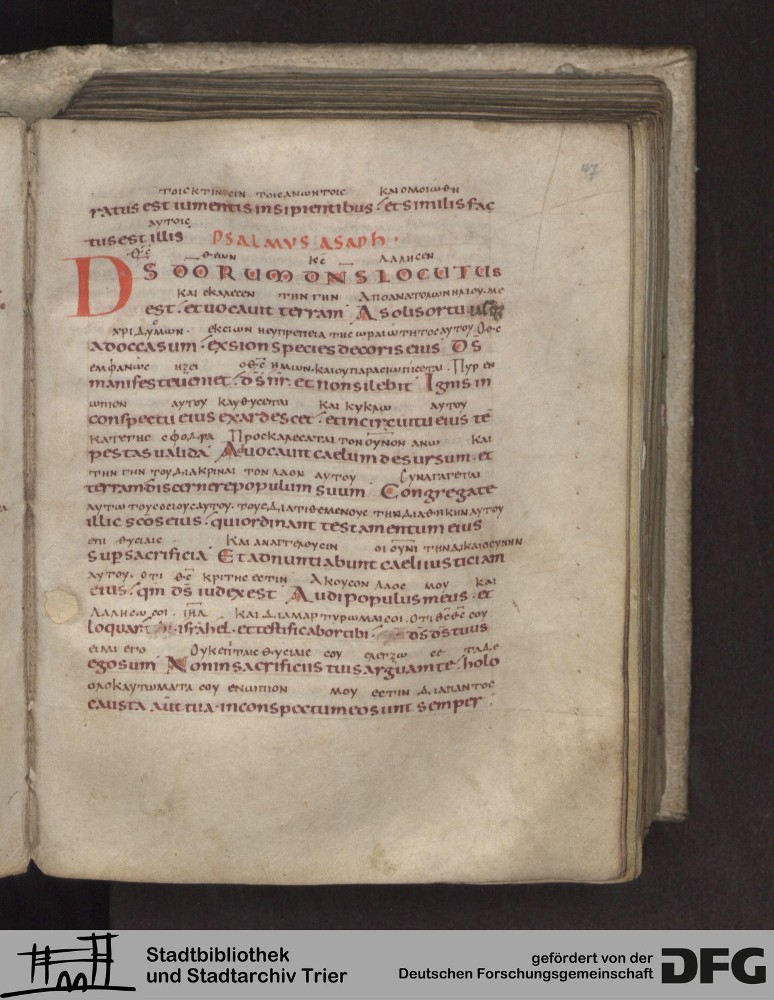 47
ΤΟΙC ΚΤΗΝΕCΙΝ ΤΟΙC ΑΝΟΗΤΟΙC ΚΑΙ ΟΜΟΙΩΘΗ
ratus est iumentis insipientibus · et similis fac
ΑΥΤΟΙC
tus est illis PSALMVS ASAPH ·
Θ̅C̅ ΘΕΩΝ Κ̅C̅ ΛΑΛΗCΕΝ
D̅S̅ DEORUM DN̅S LOCUTUS
ΚΑΙ ΕΚΑΛΕCΕΝ ΤΗΝ ΓΗΝ ΑΠΟ ΑΝΑΤΟΛΩΝ ΗΛΙΟΥ · ΜΕ
est · et uocauit terram A solis ortu
ΧΡΙ ΔΥCΜΩΝ · ΕΚ CΙΩΝ Η ΕΥΠΡΕΠΕΙΑ ΤΗC ΩΡΑΙΩΤΗΤΟC ΑΥΤΟΥ Ο Θ̅C̅
ad occasum · ex sion species decoris eius D̅S̅
ΕΜΦΑΝΩC ΗΞΕΙ Ο Θ̅C̅ ΗΜΩΝ · ΚΑΙ ΟΥ ΠΑΡΑCΙΩΠΗCΕΤΑΙ · ΠΥΡ ΕΝ
manifeste ueniet · d̅s̅ nr̅ · et non silebit Ignis in
ΩΠΙΟΝ ΑΥΤΟΥ ΚΑΥΘΥCΕΤΑΙ ΚΑΙ ΚΥΚΛΩ ΑΥΤΟΥ
conspectu eius exardescet · et in circuitu eius te̅
ΚΑΤΕΓΗC CΦΟΔΡΑ ΠΡΟCΚΑΛΕCΑΤΑΙ ΤΟΝ ΟΥΝΟΝ ΑΝΩ ΚΑΙ
pestas ualida Aduocauit caelum desursum · et
ΤΗΝ ΓΗΝ ΤΟΥ ΔΙΑΚΡΙΝΑΙ ΤΟΝ ΛΑΟΝ ΑΥΤΟΥ CΥΝΑΓΑΓΕΤΑΙ
terram discernere populum suum Congregate
ΑΥΤΩ ΤΟΥC ΟCΙΟΥC ΑΥΤΟΥ · ΤΟΥC ΔΙΑΤΙΘΕΜΕΝΟΥC ΤΗΝ ΔΙΑΘΗΚΗΝ ΑΥΤΟΥ
illic sc̅os eius · qui ordinant testamentum eius
ΕΠΙ ΘΥCΙΑΙC ΚΑΙ ΑΝΑΓΓΕΛΟΥCΙΝ ΟΙ ΟΥΝΙ ΤΗΝ ΔΙΚΑΙΟCΥΝΗΝ
sup̅ sacrificia Et adnuntiabunt caeli iusticiam
ΑΥΤΟΥ · ΟΤΙ Θ̅C̅ ΚΡΙΤΗC ΕCΤΙΝ ΑΚΟΥCΟΝ ΛΑΟC ΜΟΥ ΚΑΙ
eius · qm̅ d̅s̅ iudex est Audi populus meus · et
ΛΑΛΗCΩ CΟΙ · Ι̅Η̅Λ̅ ΚΑΙ ΔΙΑΜΑΡΤΥΡΩΜΑΙ CΟΙ · ΟΤΙ Θ̅C̅ Θ̅C̅ CΟΥ
loquar israhel · et testificabor tibi · d̅s̅ d̅s̅ tuus
ΕΙΜΙ ΕΓΟ ΟΥΚ ΕΠΙ ΤΑΙC ΘΥCΙΑΙC CΟΥ ΕΛΕΓΞΩ CΕ ΤΑ ΔΕ
ego sum Non in sacrificiis tuis arguam te · holo
ΟΛΟΚΑΥΤΩΜΑΤΑ CΟΥ ΕΝΩΠΙΟΝ ΜΟΥ ΕCΤΙΝ ΔΙΑΠΑΝΤΟC
causta aut̅ tua · in conspectu meo sunt semper
Stadtbibliothek
und Stadtarchiv Trier
gefördert von der
Deutschen Forschungsgemeinschaft
DFG